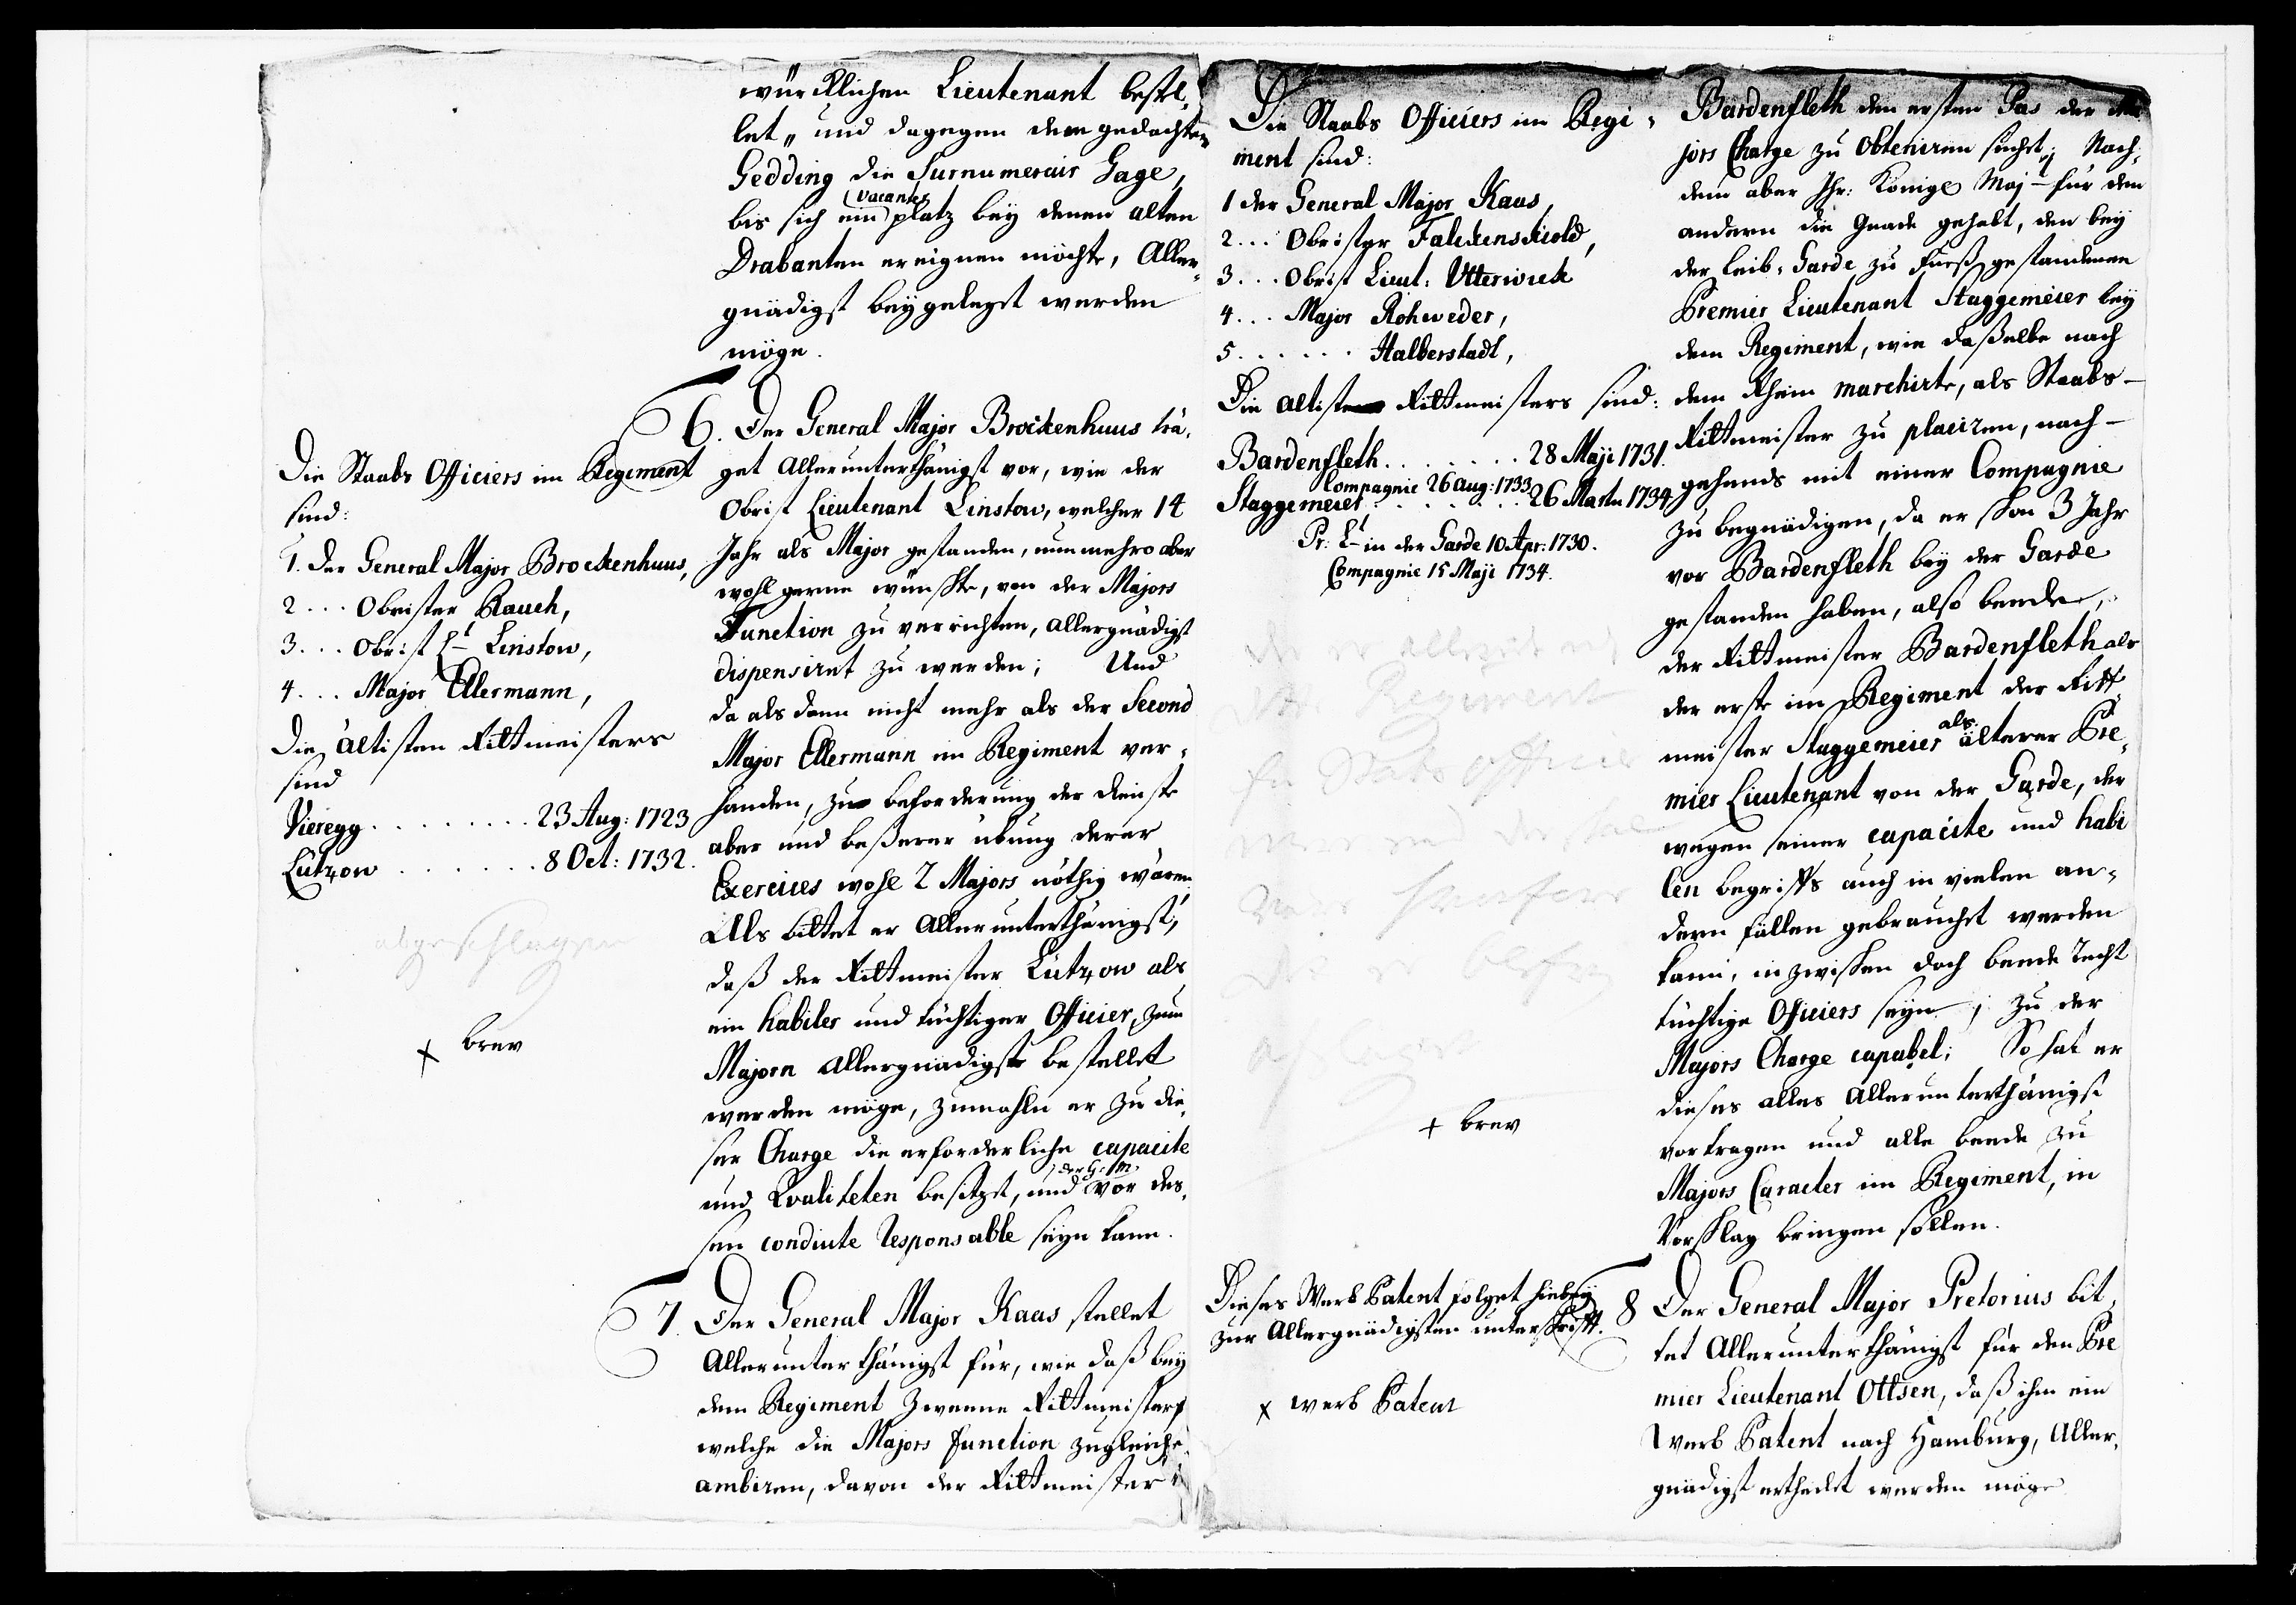 würcklichen Lieutenant bestel-
let, und dagegen dem gedachten
Gedding die Surnumerair Gage,
bis sich ein vacanter platz bey denen alten
Drabanten ereignen möchte, Aller-
gnädigst beygeleget werden
möge.
6. Der General Major Brockenhuus trä-
get Allerunterthänigst vor, wie der
Obrist Lieutenant Linstow, welcher 14
Jahr als Major gestanden, nunmehro aber
wohl gerne wünschte, von der Majors
Function zu verrichten, allergnädigst
dispensiret zu werden; Und
da als dann nicht mehr als der Second
Major Ellermann im Regiment ver-
handen, zu beforderung der dienste
aber und beßerer übung derer
Exercices wohl 2 Majors nöthig wären,
Als bittet er Allerunterthänigst,
daß der Rittmeister Lützow als
ein habiler und tüchtiger Officier, zum
Majorn allergnädigst bestellet
werden möge, zumahln er zu die-
ser Charge die erforderliche capacite
und Kvaliteten besitzet, und der G: M: vor des-
sen conduite responsable seyn kann.
7. Der General Major Kaas stellet
Allerunterthänigst für, wie daß bey
dem Regiment zweene Rittmeisters
welche die Majors function zugleich
ambiren, davon der Rittmeister
Die Staabs Officiers im Regiment
sind:
1. der General Major Brockenhuus,
2 ... Obrister Rauch,
3 ... Obrist Lt Linstow,
4 ... Major Ellermann,
Die ältisten Rittmeisters
sind
Vieregg ......... 23 Aug: 1723
Lützow ....... 8 Oct: 1732.
abgeschlagen
x brev
Die Staabs Officiers im Regi-
ment sind:
1 der General Major Kaas,
2 ... Obrister Falckenskiold,
3 ... Obrist Lieut: Utterwick
4 ... Major Rohweder,
5 ...... Halberstadt,
Die altisten Rittmeisters sind:
Bardenfleth ....... 28 Maji 1731.
Compagnie 26 Aug: 1733
Staggemeier ....... 26 Martii 1734
Pr: Lt in der Garde 10 Apr: 1730.
Compagnie 15 Maji 1734.
Regiment
+ brev
Dieses Werb Patent folget hiebey
zur Allergnädigsten unterschrifft.
x werb Patent
Bardenfleth den ersten Pas der Ma-
jors Charge zu Obteniren suchet; Nach-
dem aber Ihr: Königl Majt für dem
andern die Gnade gehabt, den bey
der Leib-Garde zu Fueß gestandenen
Premier Lieutenant Staggemeier bey
dem Regiment, wie daßelbe nach
dem Rhein marchirte, als Staabs-
Rittmeister zu placiren, nach-
gehends mit einer Compagnie
zu begnädigen, da er schon 3 Jahr
vor Bardenfleth bey der Garde
gestanden haben, also beede,
der Rittmeister Bardenfleth als
der erste im Regiment der Ritt-
meister Staggemeier als älterer Pre-
mier Lieutenant von der Garde, der
wegen seiner capacite und habi
len begriffs auch in vielen an-
dern fällen gebrauchet werden
kann, inzwischen doch beede recht
tüchtige Officiers seyn; zu der
Majors Charge capabel; So hat er
dieses alles Allerunterthänigst
vortragen und alle beede zu
Majors Caracter im Regiment, in
Vorschlag bringen sollen.
8 Der General Major Pretorius bit-
tet Allerunterthänigst für den Pre
mier Lieutenant Ottsen, daß ihm ein
Werb Patent nach Hamburg, Aller-
gnädigst ertheilet werden möge